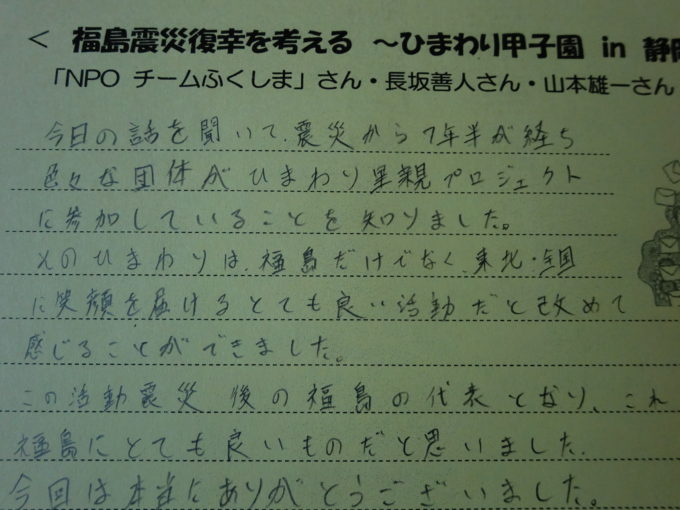 < 福島震災復幸を考える ~ひまわり甲子園 in 静岡
「NPO チームふくしま」さん・長坂善人さん・山本雄一さん
今日の話を聞いて、震災から7年半が経ち
色々な団体がひまわり里親プロジェクト
に参加していることを知りました。
そのひまわりは、福島だけでなく、東北・全国
に笑顔を届けるとても良い活動だと改めて
感じることができました。
この活動震災後の福島の代表となり、これ
福島にとても良いものだと思いました。
今回は本当にありがとうございました。